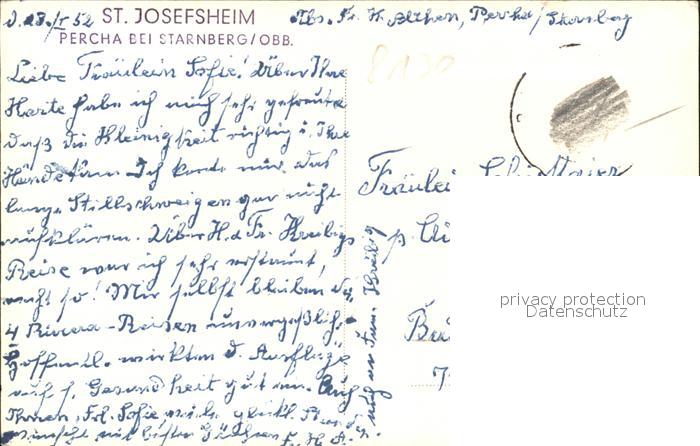 d. 28./I 52
ST. JOSEFSHEIM
PERCHA BEI STARNBERG/OBB.
Abs. Fr. H. Althen, Percha/Starnberg
8130
Liebe Fräulein Sofie! Über Ihre
Karte habe ich mich sehr gefreut u.
daß die Kleinigkeit richtig i. Ihre
Hände kam. Ich konnte mir das
lange Stillschweigen gar nicht
aufklären. Über H. u. Fr. Kreibigs
Reise war ich sehr erstaunt,
nicht so! Mir selbst bleiben die
4 Riviera-Reisen unvergeßlich.
Hoffentl. wirkten d. Ausflüge
auf s. Gesundheit gut ein. Auch
Ihnen, Frl. Sofie viele glückl. Stunden
wünscht mit besten Grüßen
Fräulei
privacy protection
Datenschutz